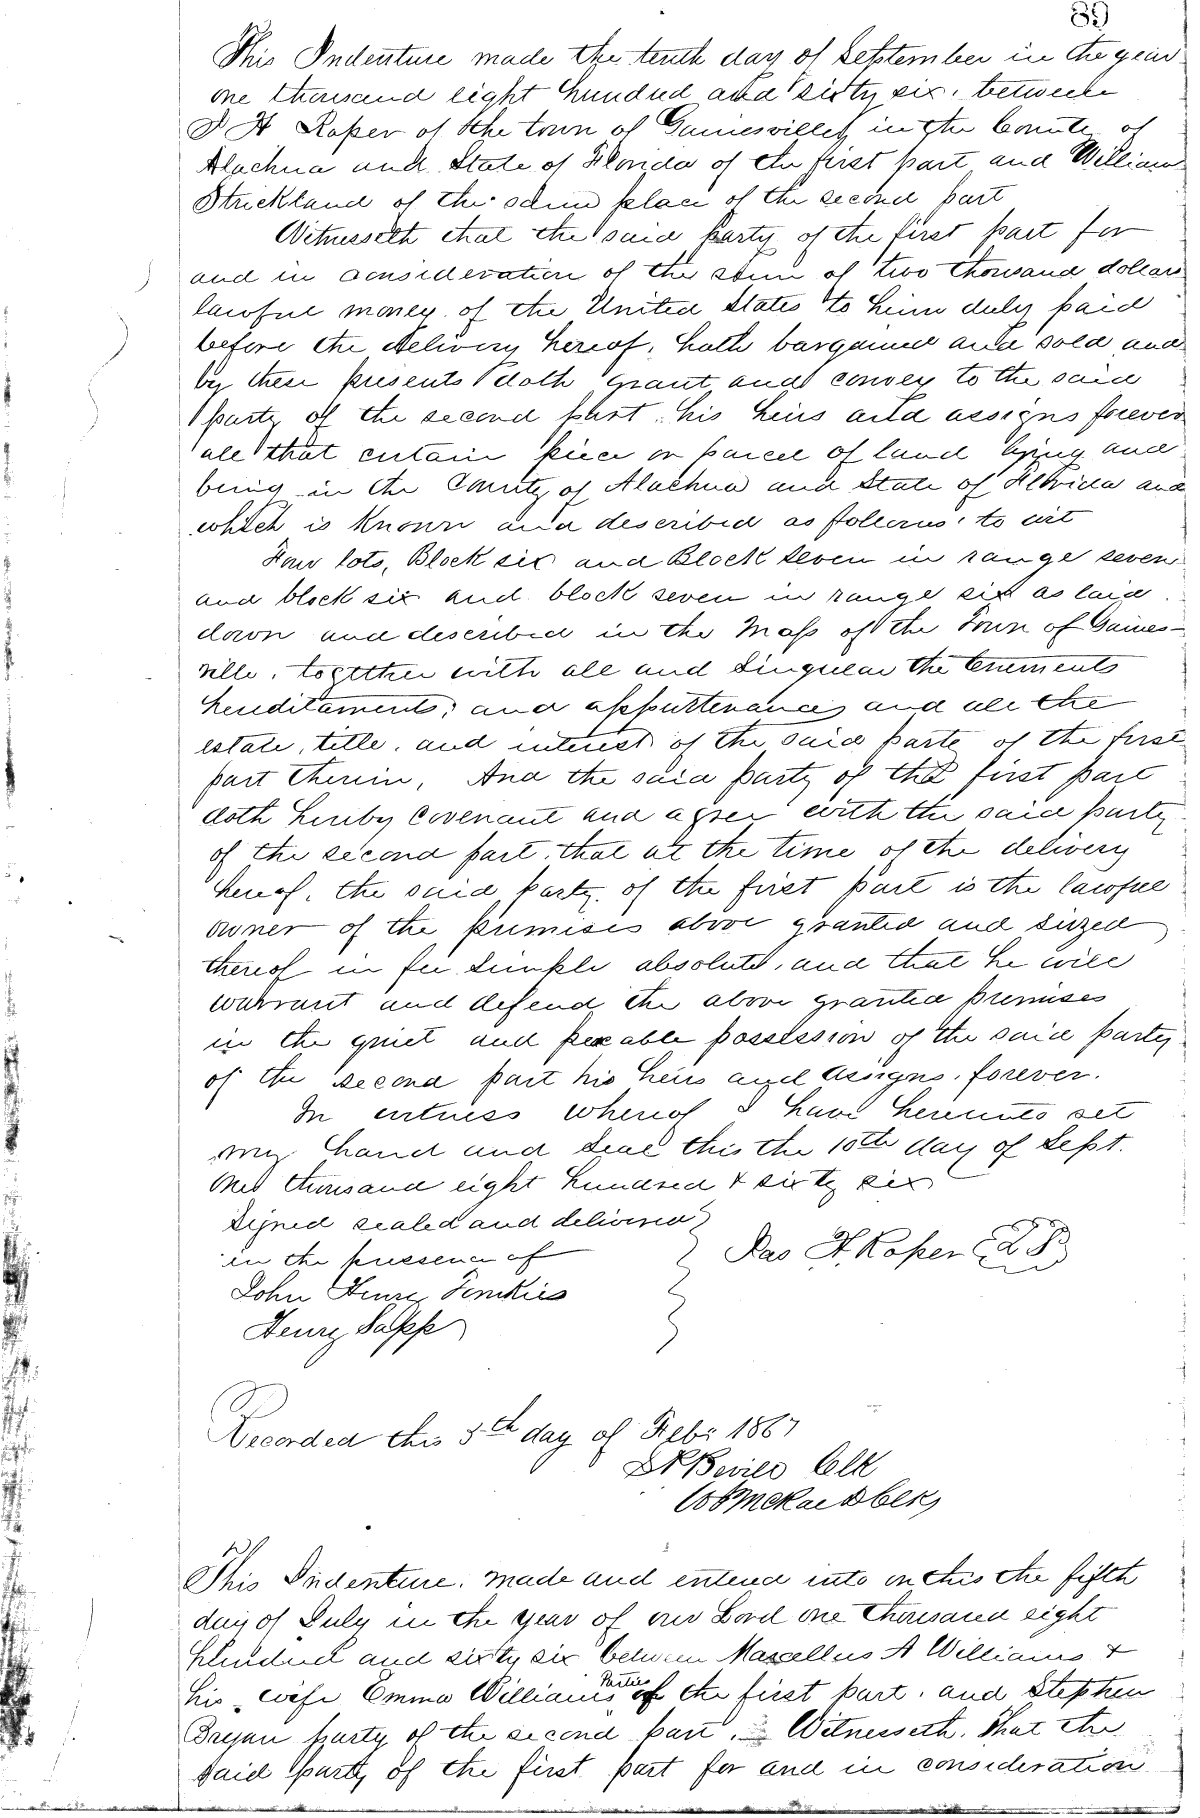 89
This Indenture made the tenth day of September in the year
one thousand eight hundred and sixty six. between
J H Roper of the town of Gainesville in the County of
Alachua and State of Florida of the first part and William
Strickland of the same place of the second part
Witnesseth that the said party of the first part for
and in consideration of the sum of two thousand dollars
lawful money of the United States to him duly paid
before the delivery hereof, hath bargained and sold and
by these presents doth grant and convey to the said
party of the second part his heirs and assigns forever
all that certain piece or parcel of land lying and
being in the County of Alachua and State of Florida and
which is known and described as follows, to wit
Four lots, Block six and Block seven in range seven
and block six and block seven in range six as laid
down and described in the Map of the Town of Gaines-
ville, together with all and singular the tenements
hereditaments; and appurtenances and all the
estate, title, and interest of the said party of the first
part therein, And the said party of the first part
doth hereby covenant and agree with the said party
of the second part, that at the time of the delivery
hereof, the said party of the first part is the lawful
owner of the premises above granted and siezed
thereof in fee simple absolute, and that he will
warrant and defend the above granted premises
in the quiet and peacable possession of the said party
of the second part his heirs and assigns, forever.
In witness whereof I have hereunto set
my hand and seal this the 10th day of Sept.
One thousand eight hundred & sixty six
Signed sealed and delivered
in the presence of Jas H. Roper L S
John Henry
Henry Sapp
Recorded this 5th day of Feb: 1867
Bevill Clk
McRae D Clk
This Indenture. made and entered into on this the fifth
day of July in the year of our Lord one thousand eight
hundred and sixty six between Marcellus A Williams &
his wife Emma Williams Parties of the first part, and Stephen
Bryan party of the second part. Witnesseth. That the
said party of the first part for and in consideration